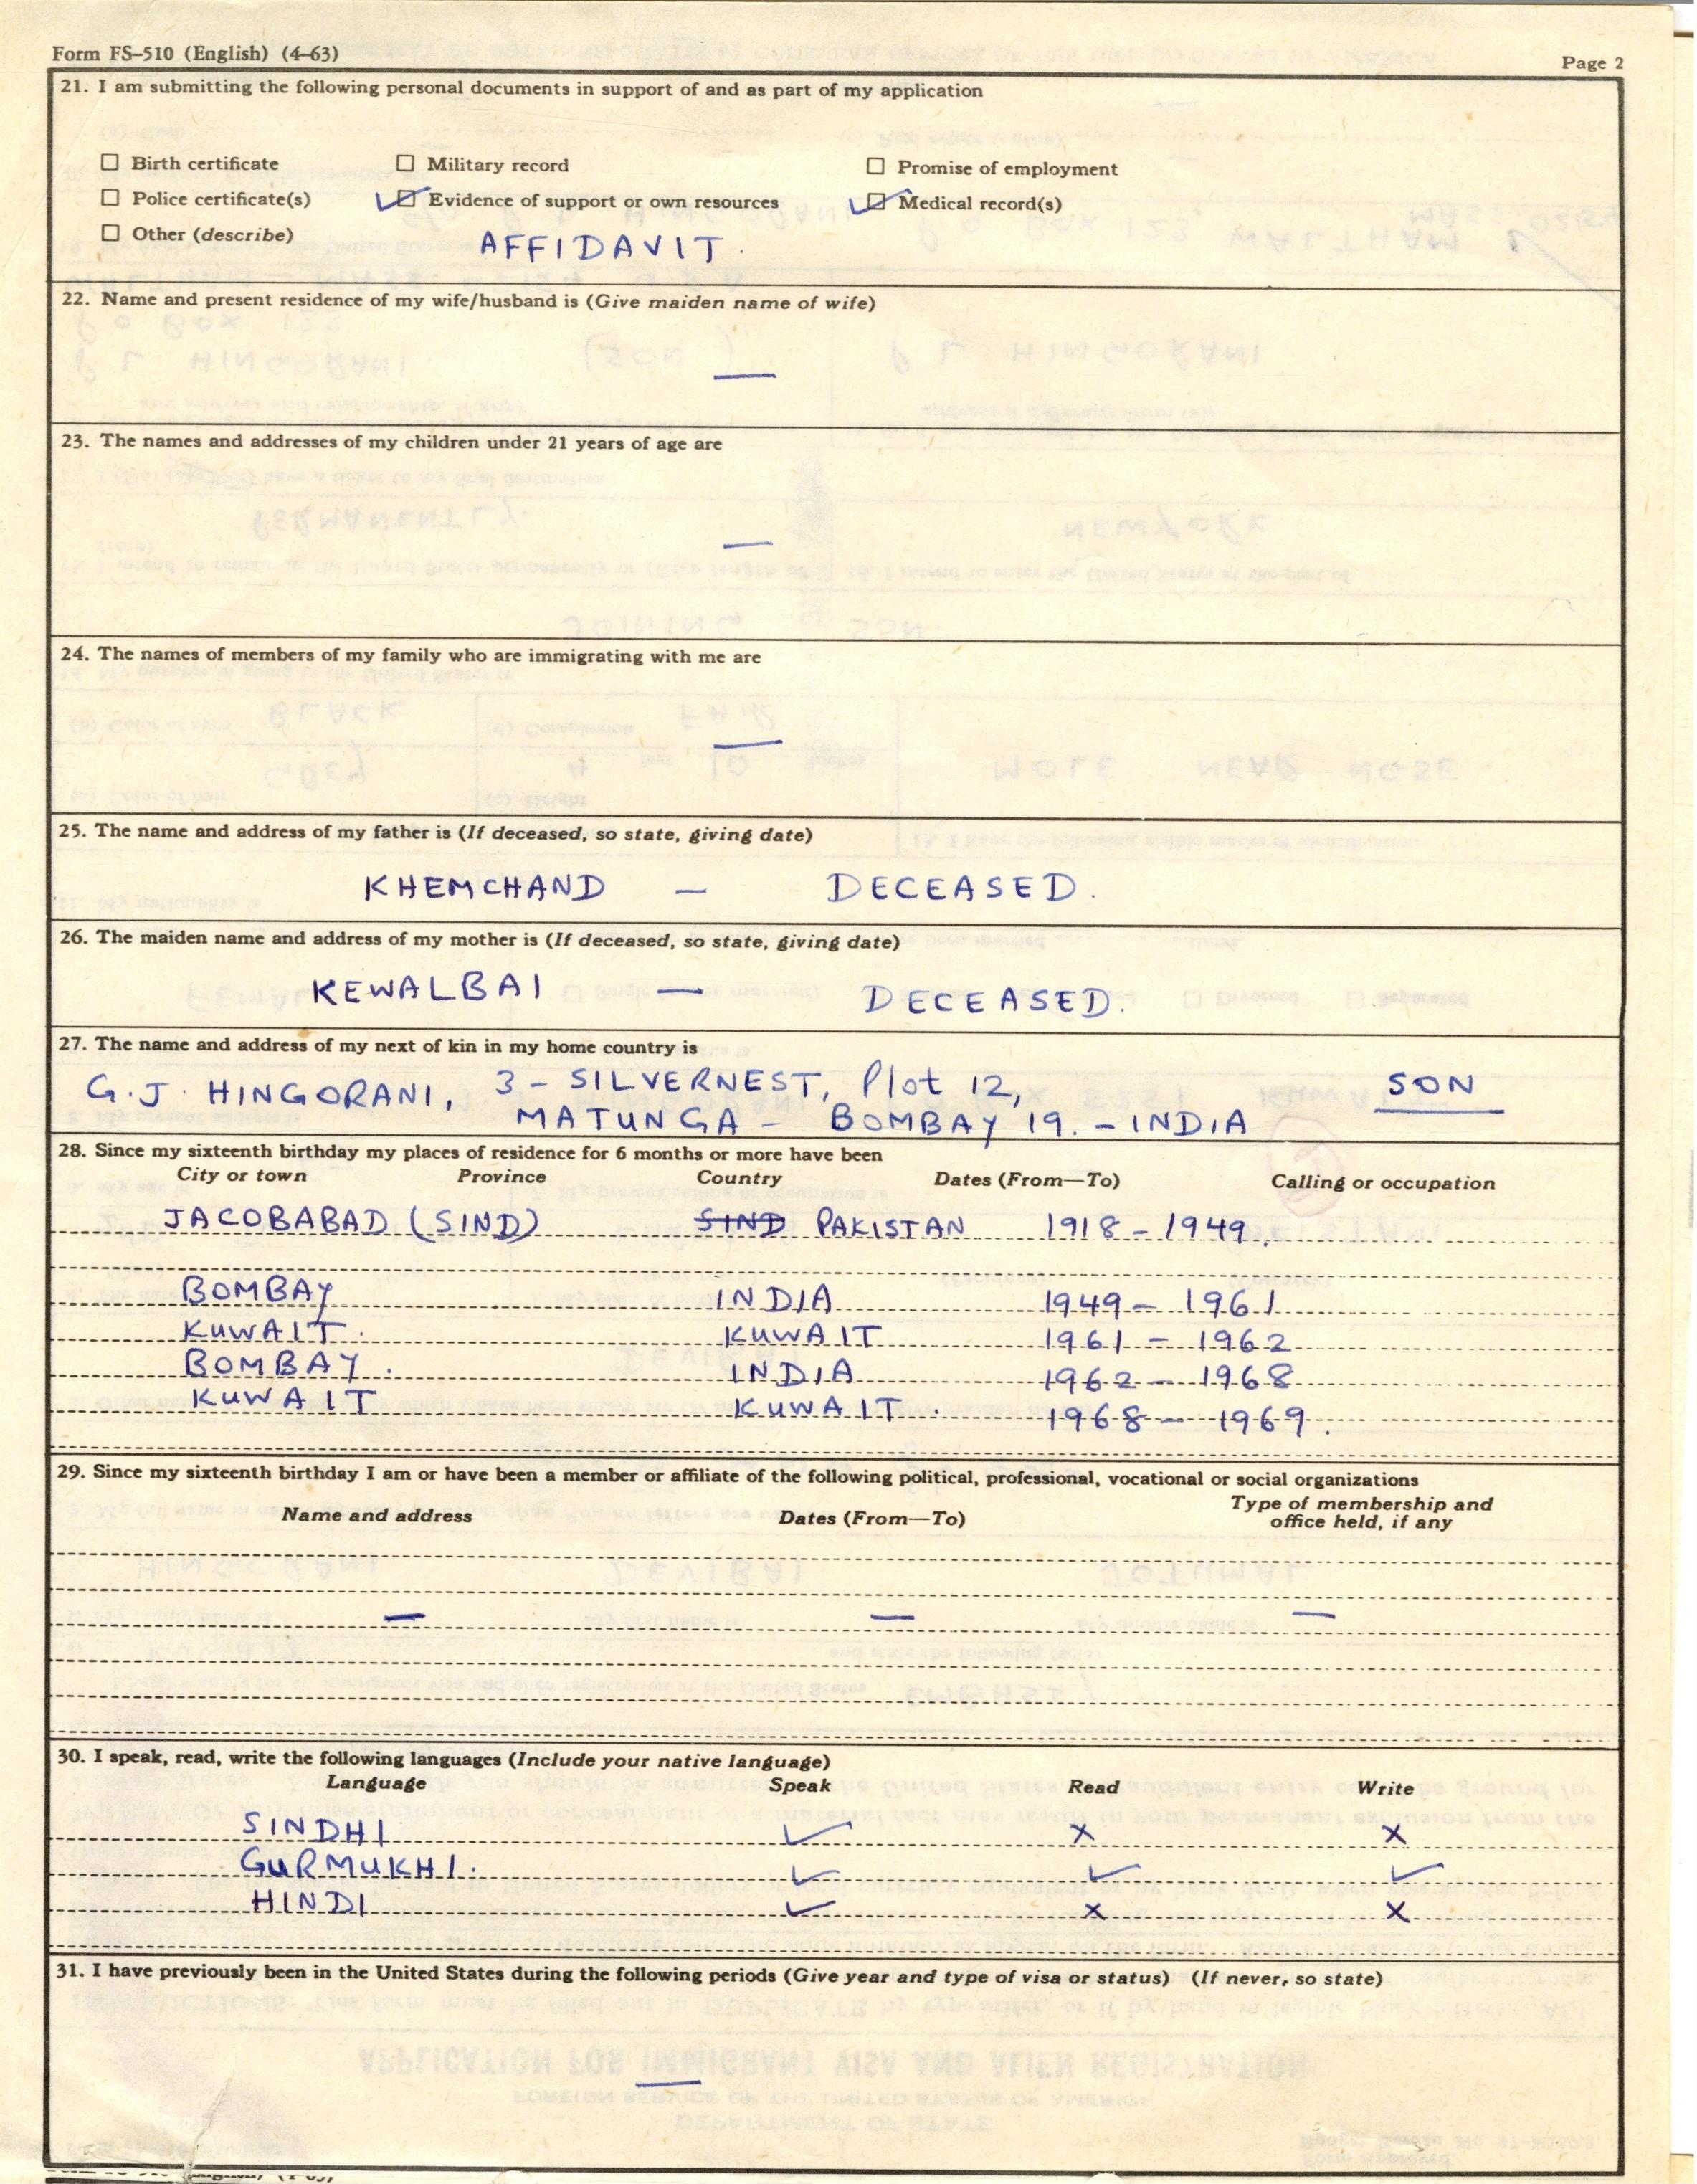 Form FS-510 (English) (4-63) Page 2
21. I am submitting the following personal documents in support of and as part of my application
☐ Birth certificate ☐ Military record ☐ Promise of employment
☐ Police certificate(s) ☑ Evidence of support or own resources ☑ Medical record(s)
☐ Other (describe) AFFIDAVIT.
22. Name and present residence of my wife/husband is (Give maiden name of wife)
—
23. The names and addresses of my children under 21 years of age are
—
24. The names of members of my family who are immigrating with me are
—
25. The name and address of my father is (If deceased, so state, giving date)
KHEMCHAND — DECEASED.
26. The maiden name and address of my mother is (If deceased, so state, giving date)
KEWALBAI — DECEASED.
27. The name and address of my next of kin in my home country is
G.J. HINGORANI, 3 - SILVERNEST, Plot 12, SON
MATUNGA - BOMBAY 19. - INDIA
28. Since my sixteenth birthday my places of residence for 6 months or more have been
City or town Province Country Dates (From—To) Calling or occupation
JACOBABAD (SIND) SIND PAKISTAN 1918 - 1949.
BOMBAY INDIA 1949 - 1961
KUWAIT. KUWAIT 1961 - 1962
BOMBAY. INDIA 1962 - 1968
KUWAIT KUWAIT. 1968 - 1969.
29. Since my sixteenth birthday I am or have been a member or affiliate of the following political, professional, vocational or social organizations
Name and address Dates (From—To) Type of membership and
office held, if any
— — —
30. I speak, read, write the following languages (Include your native language)
Language Speak Read Write
SINDHI ✓ x x
GURMUKHI. ✓ ✓ ✓
HINDI ✓ x x
31. I have previously been in the United States during the following periods (Give year and type of visa or status) (If never, so state)
—